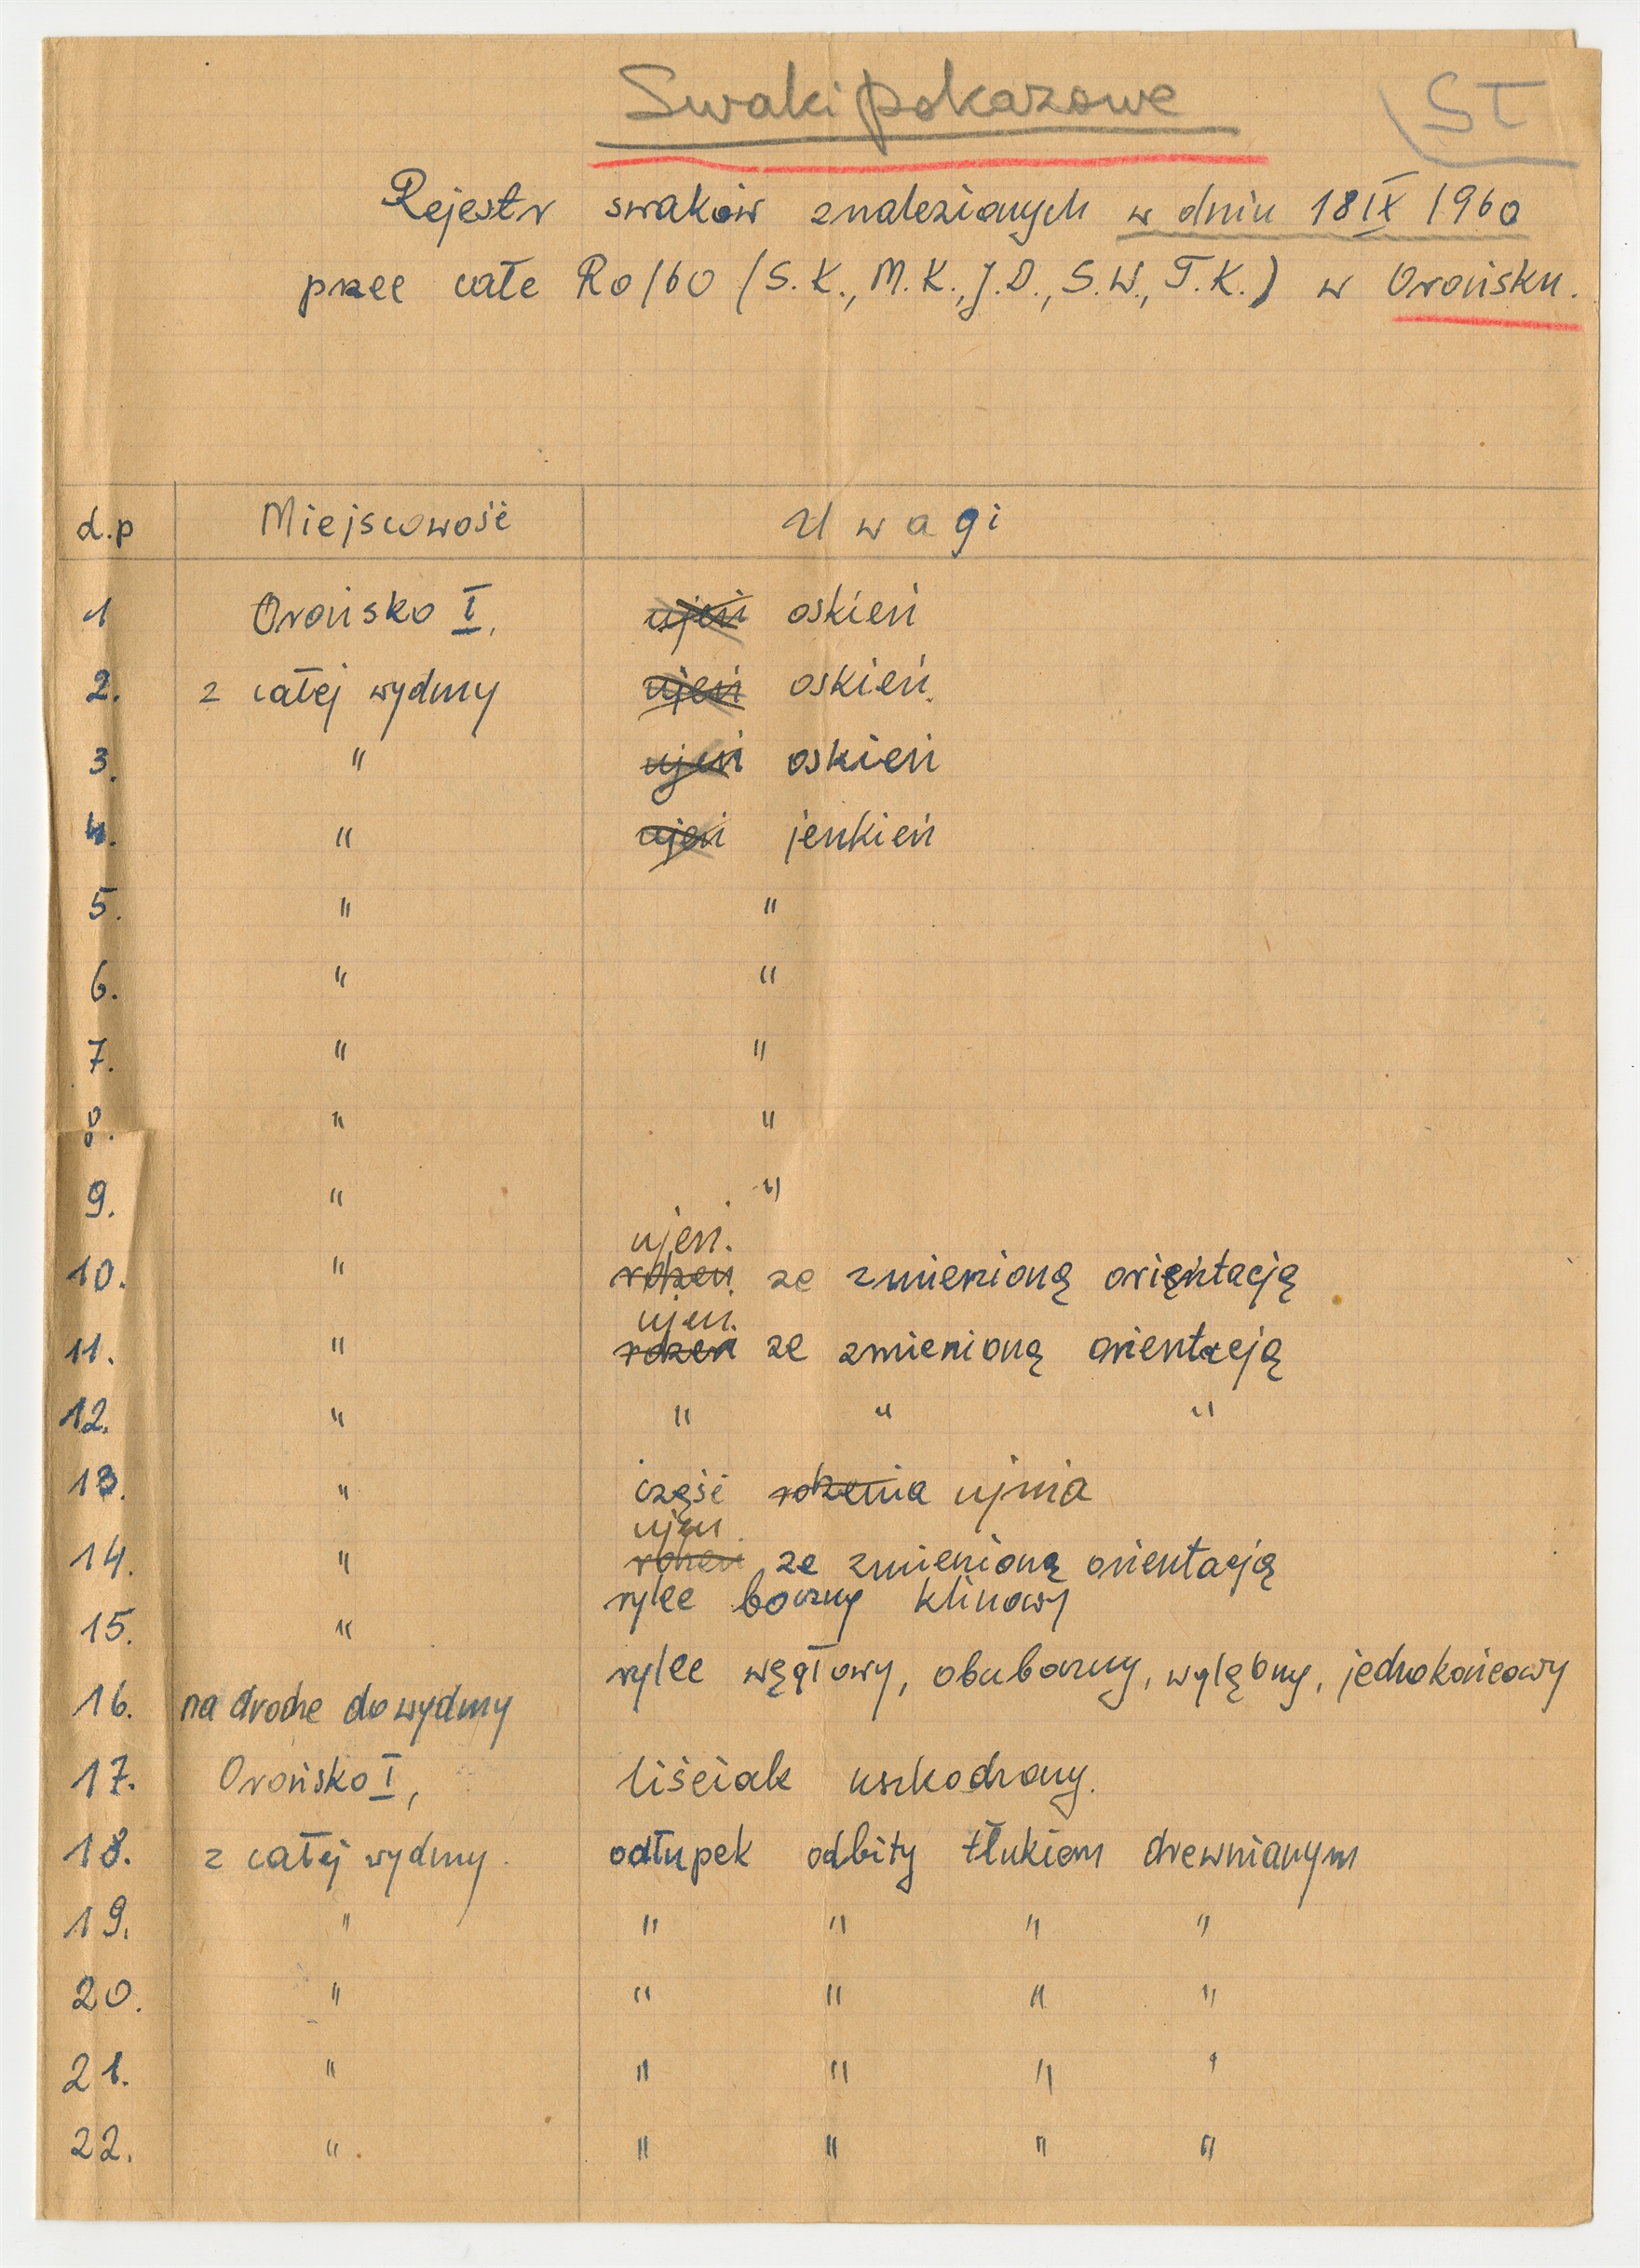 Swaki pokazowe
ST
Rejestr swaków znalezionych w dniu 18 IX 1960
przez całe Ro/60 (S.K., M.K., J.D., S.W., T.K.) w Orońsku.
L.p Miejscowość Uwagi
1 Orońsko I, ujeń oskień
2. z całej wydmy ujeń oskień.
3. " ujeń oskień
4. " ujeń jenkień
5. " "
6. " "
7. " "
8. " "
9. " "
ujeń.
10. " rdzeń ze zmienioną orientacją
ujeń.
11. " rdzeń ze zmienioną orientacją
12. " " " "
13. " część rdzenia ujnia
ujeń
14. " rdzeń ze zmienioną orientacją
15. " rylec boczny klinowy
16. na drodze do wydmy rylec węgłowy, obuboczny, wgłębny, jednokońcowy
17. Orońsko I, liściak uszkodzony.
18. z całej wydmy. odłupek odbity tłukiem drewnianym
19. " " " " "
20. " " " " "
21. " " " " "
22. " " " " "